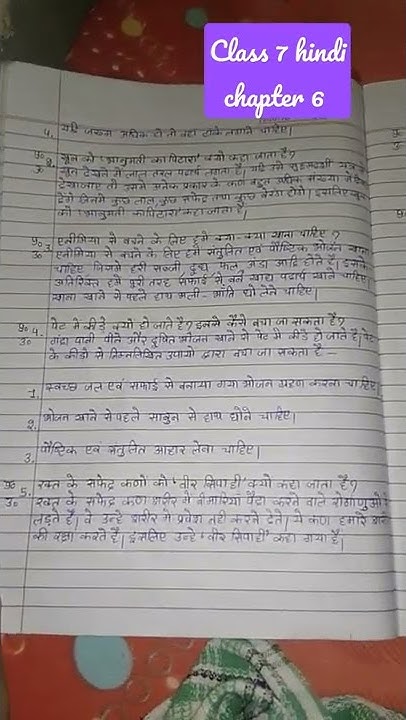 Class 7 hindi
chapter 6
4. यदि जख्म अधिक हो तो वहां टांके लगाने चाहिए।
प्र० 2. खून को 'भानुमती का पिटारा' क्यों कहा जाता है?
उ० खून देखने में लाल तरल पदार्थ लगता है। यदि इसे सूक्ष्मदर्शी यंत्र से
देखा जाए तो उसमें अनेक प्रकार के कण बहुत अधिक संख्या में दिखाई
देंगे जिनमें कुछ लाल, कुछ सफेद तथा कुछ होंगे। इसलिए खून
को 'भानुमती का पिटारा' कहा जाता है।
प्र० 3. एनीमिया से बचने के लिए हमें क्या-क्या खाना चाहिए?
उ० एनीमिया से बचने के लिए हमें संतुलित एवं पौष्टिक भोजन खाना
चाहिए जिसमें हरी सब्जी दूध फल अंडा आदि होते हैं। इसके
अतिरिक्त हमें पूरी तरह सफाई से बने खाद्य पदार्थ खाने चाहिए।
खाना खाने से पहले हाथ भली-भांति धो लेने चाहिए।
प्र० 4. पेट में कीड़े क्यों हो जाते हैं? इनसे कैसे बचा जा सकता है?
उ० गंदा पानी पीने और दूषित भोजन खाने से पेट में कीड़े हो जाते हैं। पेट
के कीड़ों से निम्नलिखित उपायों द्वारा बचा जा सकता है -
1. स्वच्छ जल एवं सफाई से बनाया गया भोजन ग्रहण करना चाहिए।
2. भोजन खाने से पहले साबुन से हाथ धोने चाहिए।
3. पौष्टिक एवं संतुलित आहार लेना चाहिए।
प्र० 5. रक्त के सफेद कणों को 'वीर सिपाही' क्यों कहा जाता है?
उ० रक्त के सफेद कण शरीर में बीमारियां पैदा करने वाले रोगाणुओं से
लड़ते हैं। वे उन्हें शरीर में प्रवेश नहीं करने देते। ये कण हमारे शरीर
की रक्षा करते हैं। इसलिए उन्हें 'वीर सिपाही' कहा गया है।